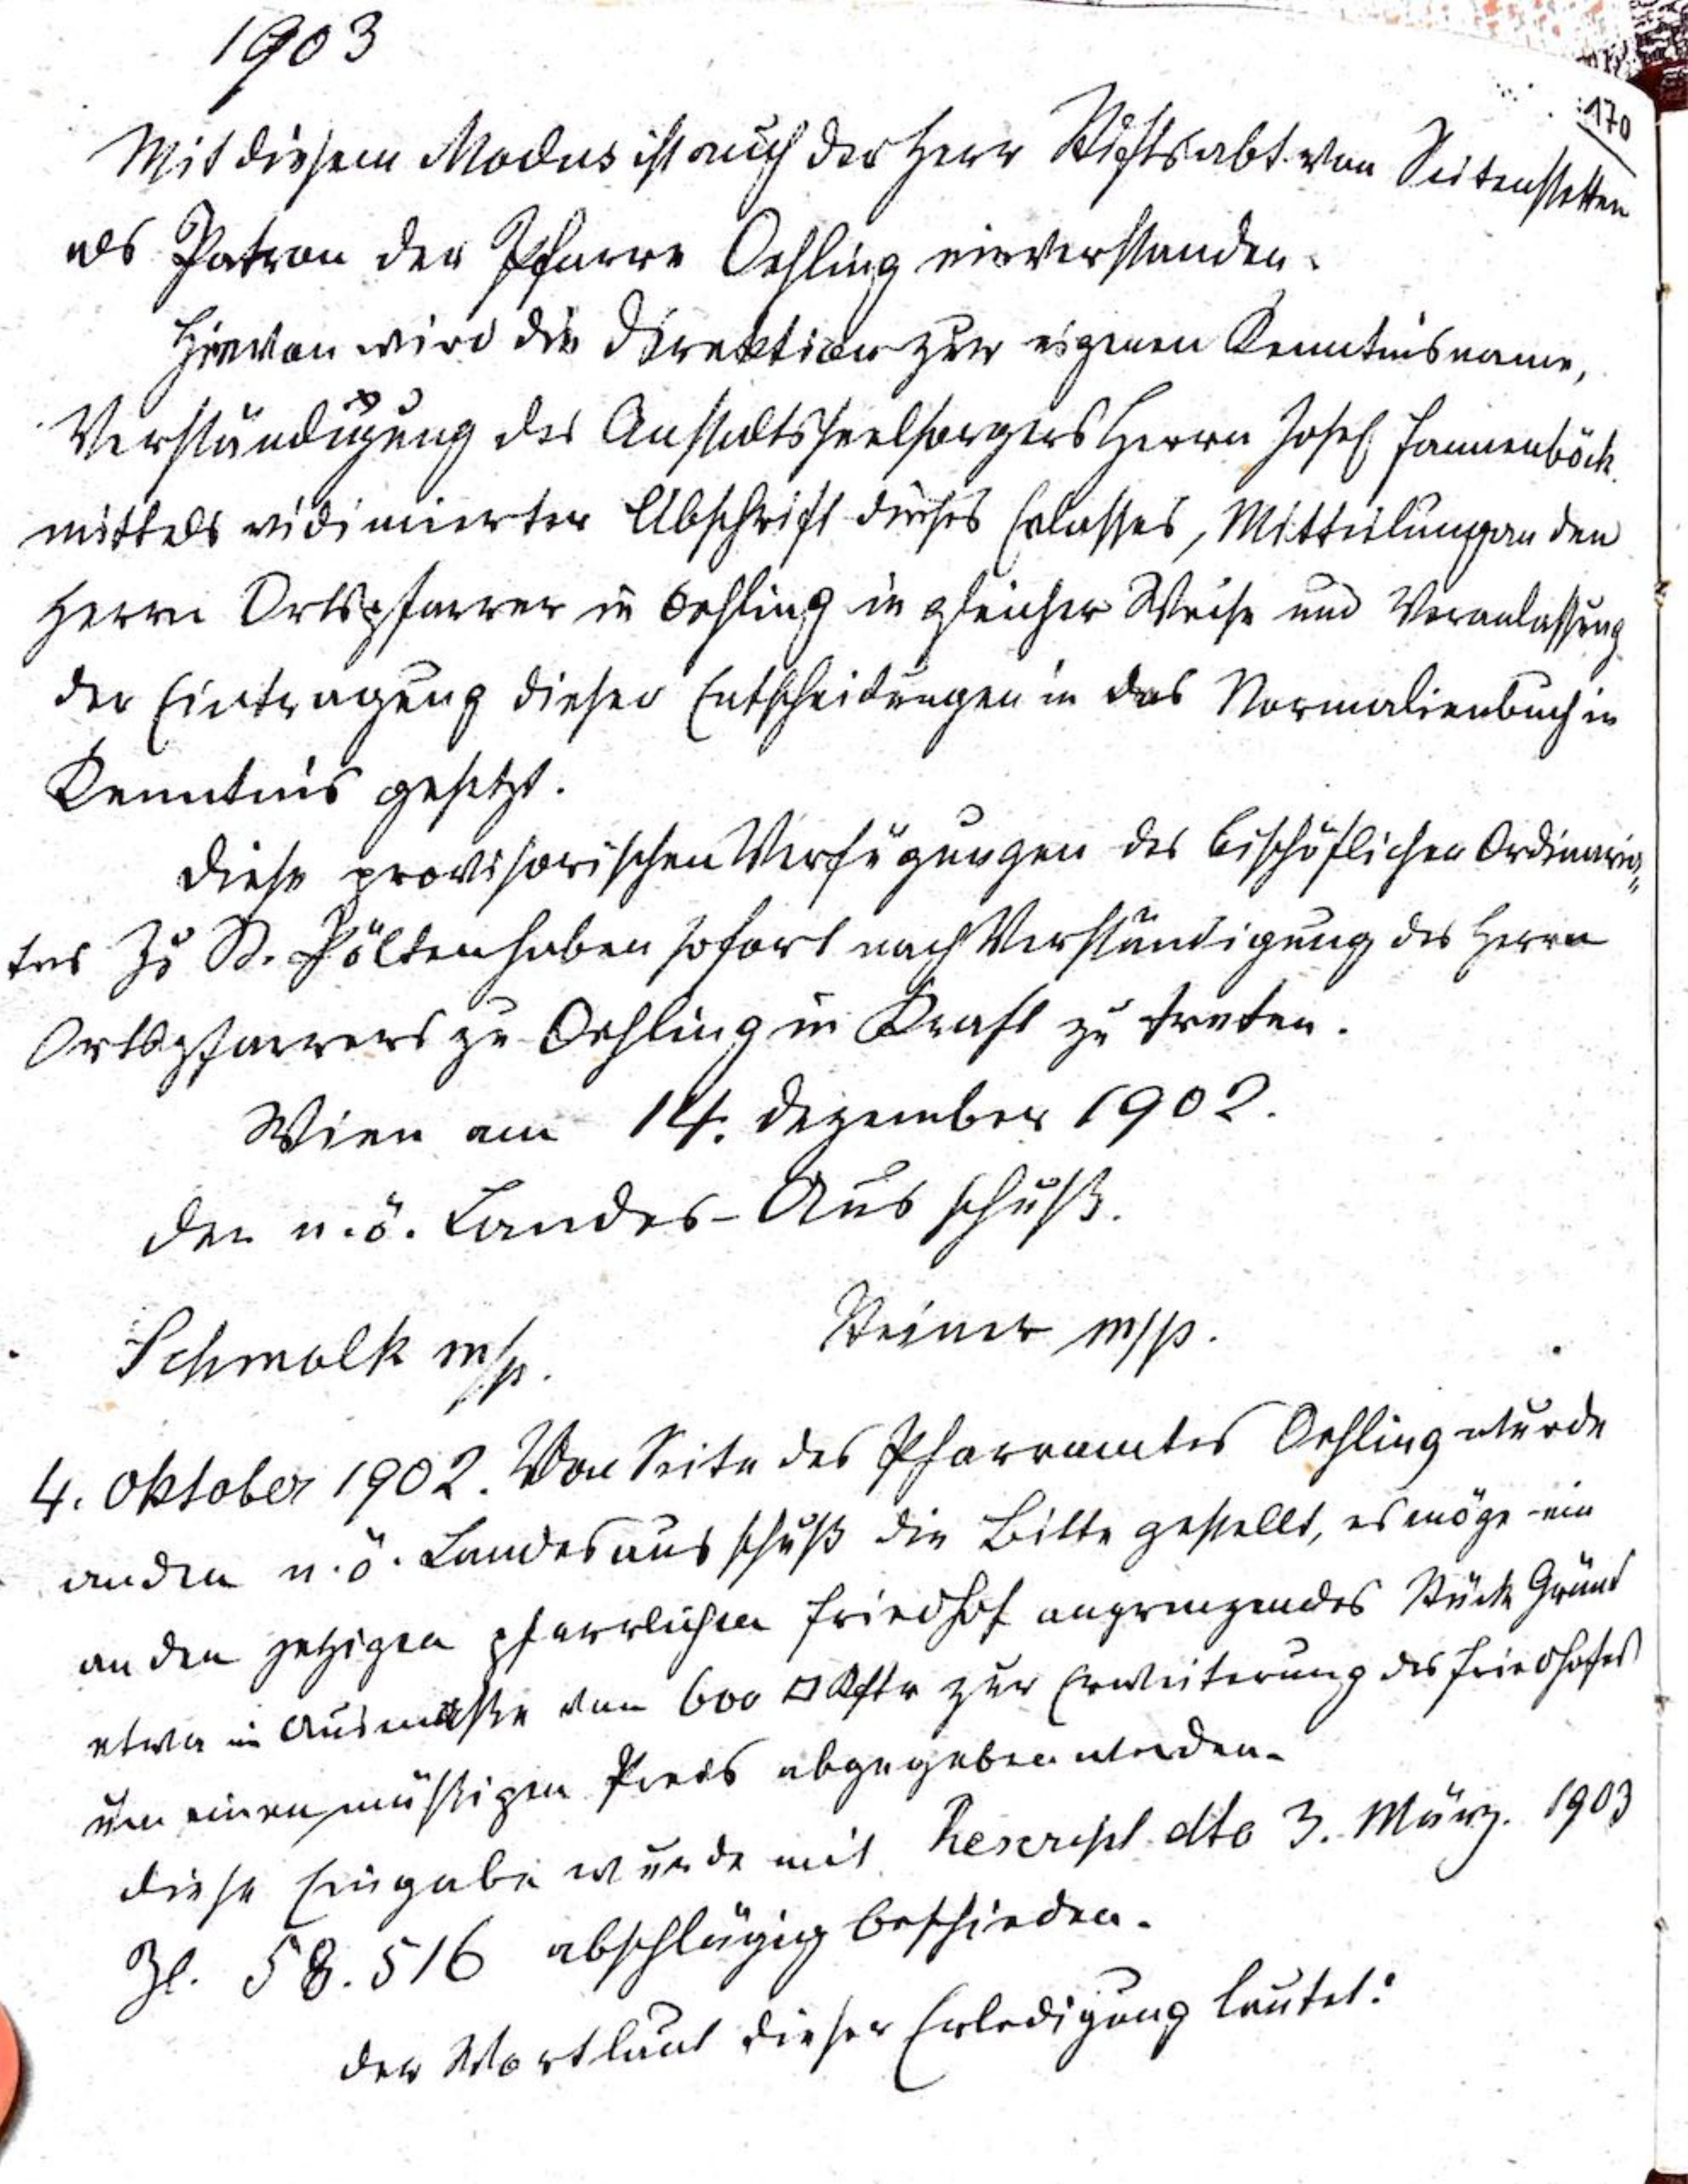 1903
170
Mit diesem Modus ist auch der Herr Stiftsabt von Seitenstetten
als Patron der Pfarre Oehling einverstanden.
Hievon wird die Direktion zur eigenen Kenntnisname,
Verständigung des Anstaltsseelsorgers Herrn Josef Pannenböck
mittels vidimierter Abschrift dieses Erlasses, Mitteilung an den
Herrn Ortspfarrer in Oehling in gleicher Weise und Veranlassung
der Eintragung dieser Entscheidungen in das Normalienbuch in
Kenntnis gesetzt.
Diese provisorischen Verfügungen des bischöflichen Ordinaria„
tes zu St. Pölten haben sofort nach Verständigung des Herrn
Ortspfarrers zu Oehling in Kraft zu treten.
Wien am 14. Dezember 1902.
Der n.ö. Landes-Ausschuß.
Steiner m/p.
Schmolk m/p.
4. Oktober 1902. Von Seite des Pfarramtes Oehling wurde
an den n.ö. Landesausschuß die Bitte gestellt, es möge ein
an den jetzigen pfarrlichen Friedhof angrenzendes Stück Grund
etwa im Ausmaße von 600 □Kftr zur Erweiterung des Friedhofes
um einen mäßigen Preis abgegeben werden.
Diese Eingabe wurde mit Rescript dto 3. März. 1903
Zl. 58.516 abschlägig beschieden.
Der Wortlaut dieser Erledigung lautet: